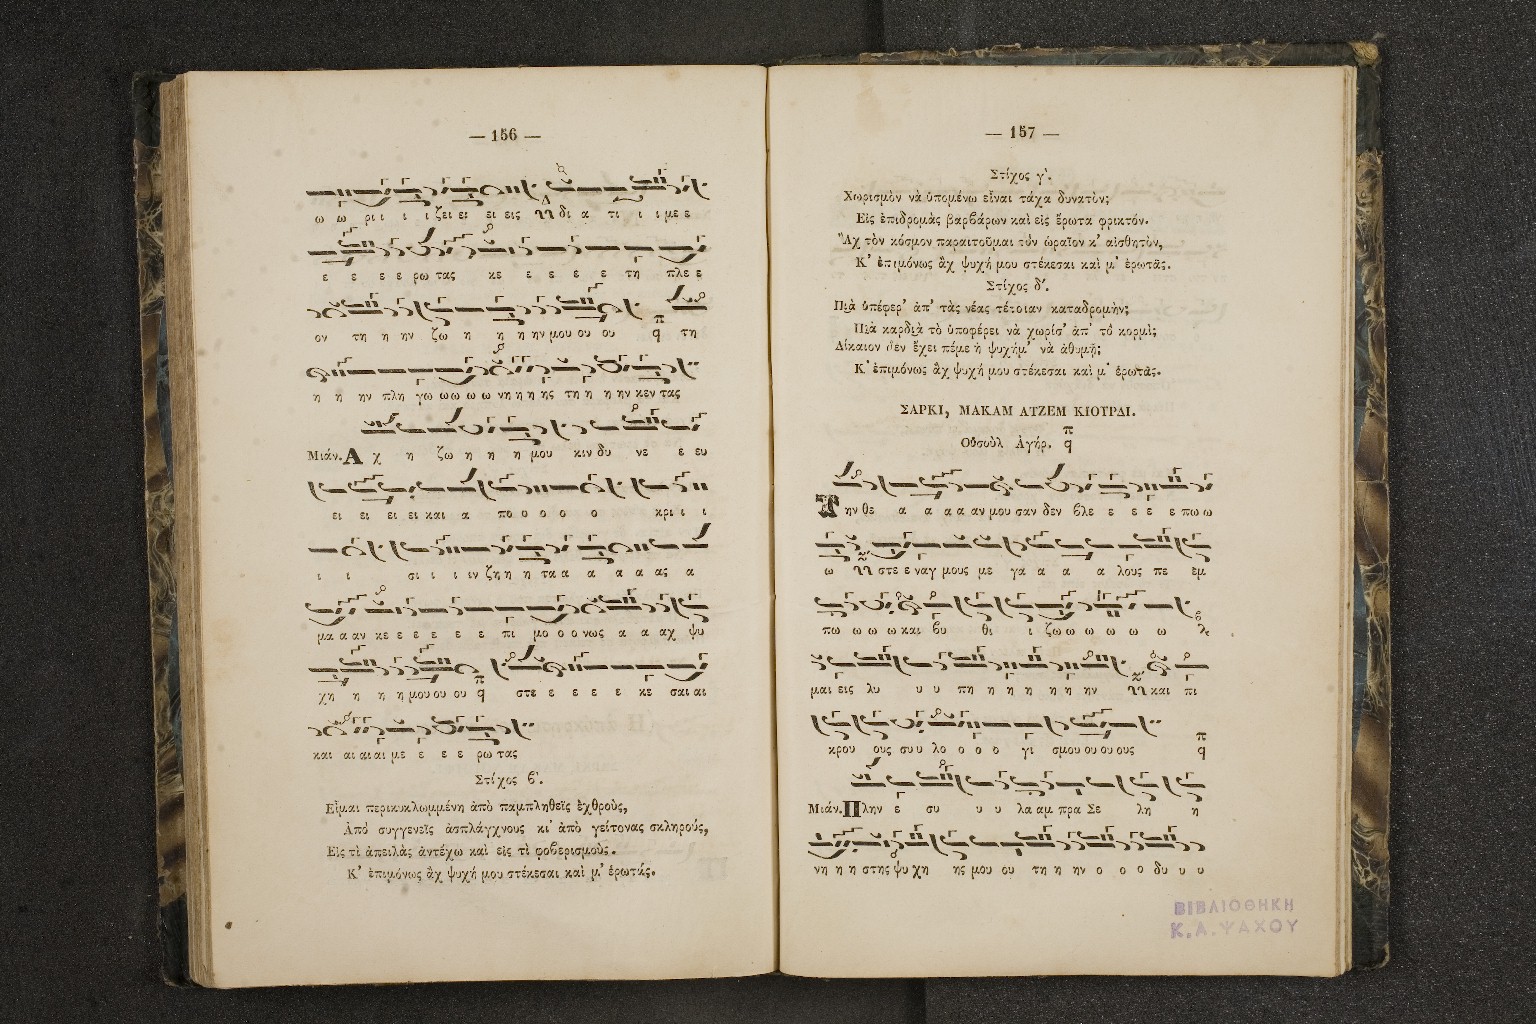 — 156 —
ω ω ρι ι ι ι ζει ει ει εις δι α τι ι ι με ε
ε ε ε ε ρω τας κε ε ε ε ε τη πλε ε
ον τη η ην ζω η η η ην μου ου ου π q τη
η η ην πλη γω ω ω ω ω νη η η ης τη η η ην κεν τας
Μιάν. Α χ η ζω η η η μου κιν δυ νε ε ευ
ει ει ει ει και α πο ο ο ο ο κρι ι ι
ι ι σι ι ι ιν ζη η η τα α α α α ας α
μα α αν κε ε ε ε ε ε πι μο ο ο νως α α αχ ψυ
χη η η η μου ου ου π q στε ε ε ε ε κε σαι αι
και αι αι αι με ε ε ε ρω τας
Στίχος β'.
Εἶμαι περικυκλωμμένη ἀπὸ παμπληθεῖς ἐχθροὺς,
Ἀπὸ συγγενεῖς ἀσπλάγχνους κι' ἀπὸ γείτονας σκληρούς,
Εἰς τὶ ἀπειλὰς ἀντέχω καὶ εἰς τὶ φοβερισμούς.
Κ' ἐπιμόνως ἂχ ψυχή μου στέκεσαι καὶ μ' ἐρωτάς.
— 157 —
Στίχος γ'.
Χωρισμὸν νὰ ὑπομένω εἶναι τάχα δυνατὸν;
Εἰς ἐπιδρομὰς βαρβάρων καὶ εἰς ἔρωτα φρικτόν.
Ἂχ τὸν κόσμον παραιτοῦμαι τὸν ὡραῖον κ' αἰσθητὸν,
Κ' ἐπιμόνως ἂχ ψυχή μου στέκεσαι καὶ μ' ἐρωτᾶς.
Στίχος δ'.
Πιὰ ὑπέφερ' ἀπ' τὰς νέας τέτοιαν καταδρομὴν;
Πιὰ καρδιὰ τὸ ὑποφέρει νὰ χωρίσ' ἀπ' τὸ κορμὶ;
Δίκαιον δὲν ἔχει πέμε ἡ ψυχήμ' νὰ ἀθυμῇ;
Κ' ἐπιμόνως ἂχ ψυχή μου στέκεσαι καὶ μ' ἐρωτᾶς.
ΣΑΡΚΙ, ΜΑΚΑΜ ΑΤΖΕΜ ΚΙΟΥΡΔΙ.
Οὐσοὺλ Ἀγήρ. π q
Τ ην θε α α α α αν μου σαν δεν βλε ε ε ε ε πω ω
ω στε ε ναγ μους με γα α α α λους πε εμ
πω ω ω ω και βυ θι ι ζω ω ω ω ω ω
μαι εις λυ υ υ πη η η η η η ην και πι
κρου ους συ υ λο ο ο ο γι σμου ου ου ους π q
Μιάν. Π λην ε συ υ υ λα αμ πρα Σε λη η
νη η η στης ψυ χη ης μου ου τη η ην ο ο ο δυ υ υ
ΒΙΒΛΙΟΘΗΚΗ
Κ. Α. ΨΑΧΟΥ